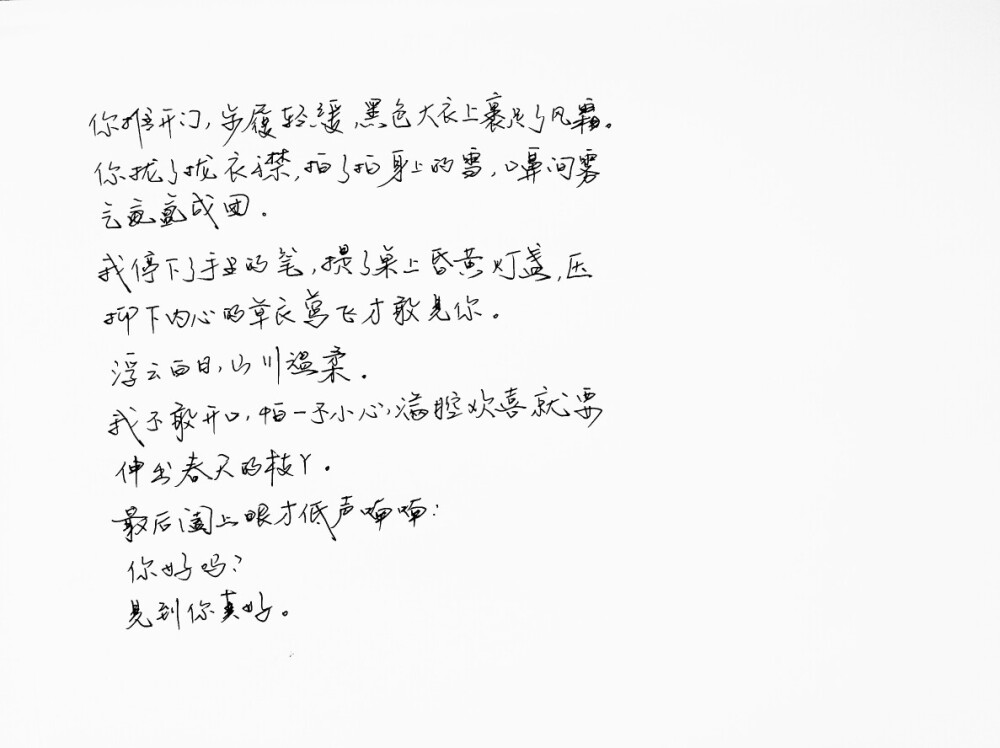 你推开门，步履轻缓，黑色大衣上裹足了风霜。
你拢了拢衣襟，拍了拍身上的雪，口鼻间雾
气氤氲成团.
我停下了手里的笔，提了桌上昏黄灯盏，压
抑下内心的草衣莺飞才敢见你。
浮云白日，山川温柔.
我不敢开口，怕一不小心，满腔欢喜就要
伸出春天的枝丫.
最后阖上眼才低声喃喃：
你好吗？
见到你真好。